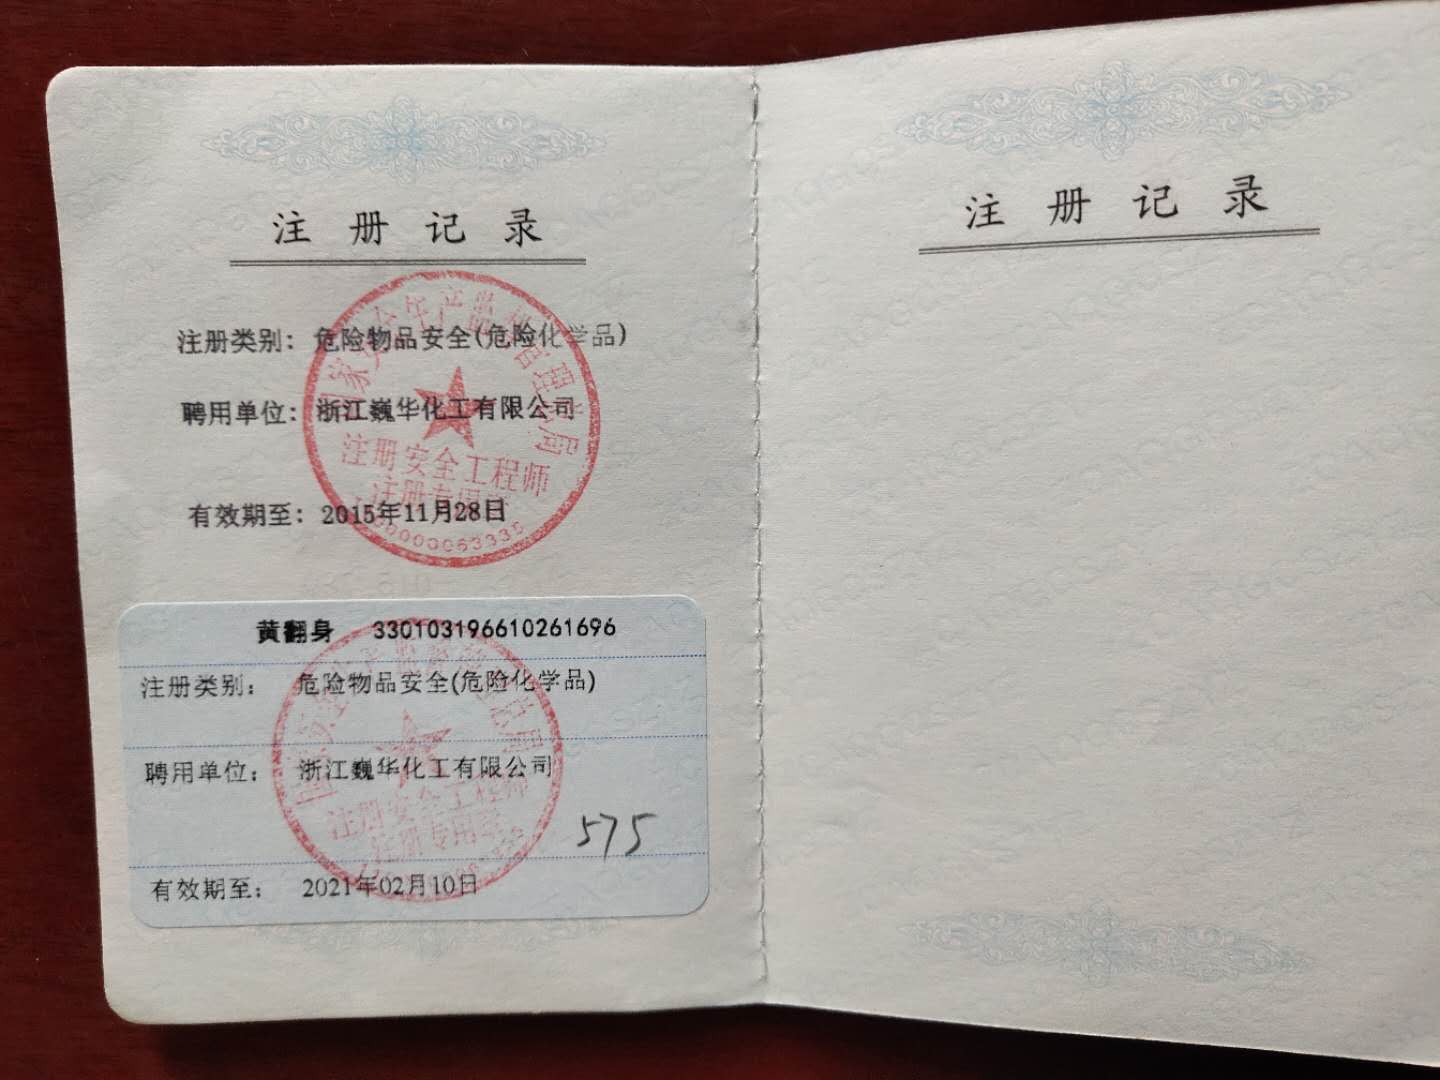 注册记录
注册类别：危险物品安全(危险化学品)
聘用单位：浙江巍华化工有限公司
有效期至：2015年11月28日
国家安全生产监督管理总局
注册安全工程师
注册专用章
黄翻身 330103196610261696
注册类别：危险物品安全(危险化学品)
聘用单位：浙江巍华化工有限公司
575
有效期至：2021年02月10日
注册安全工程师
注册专用章
注册记录